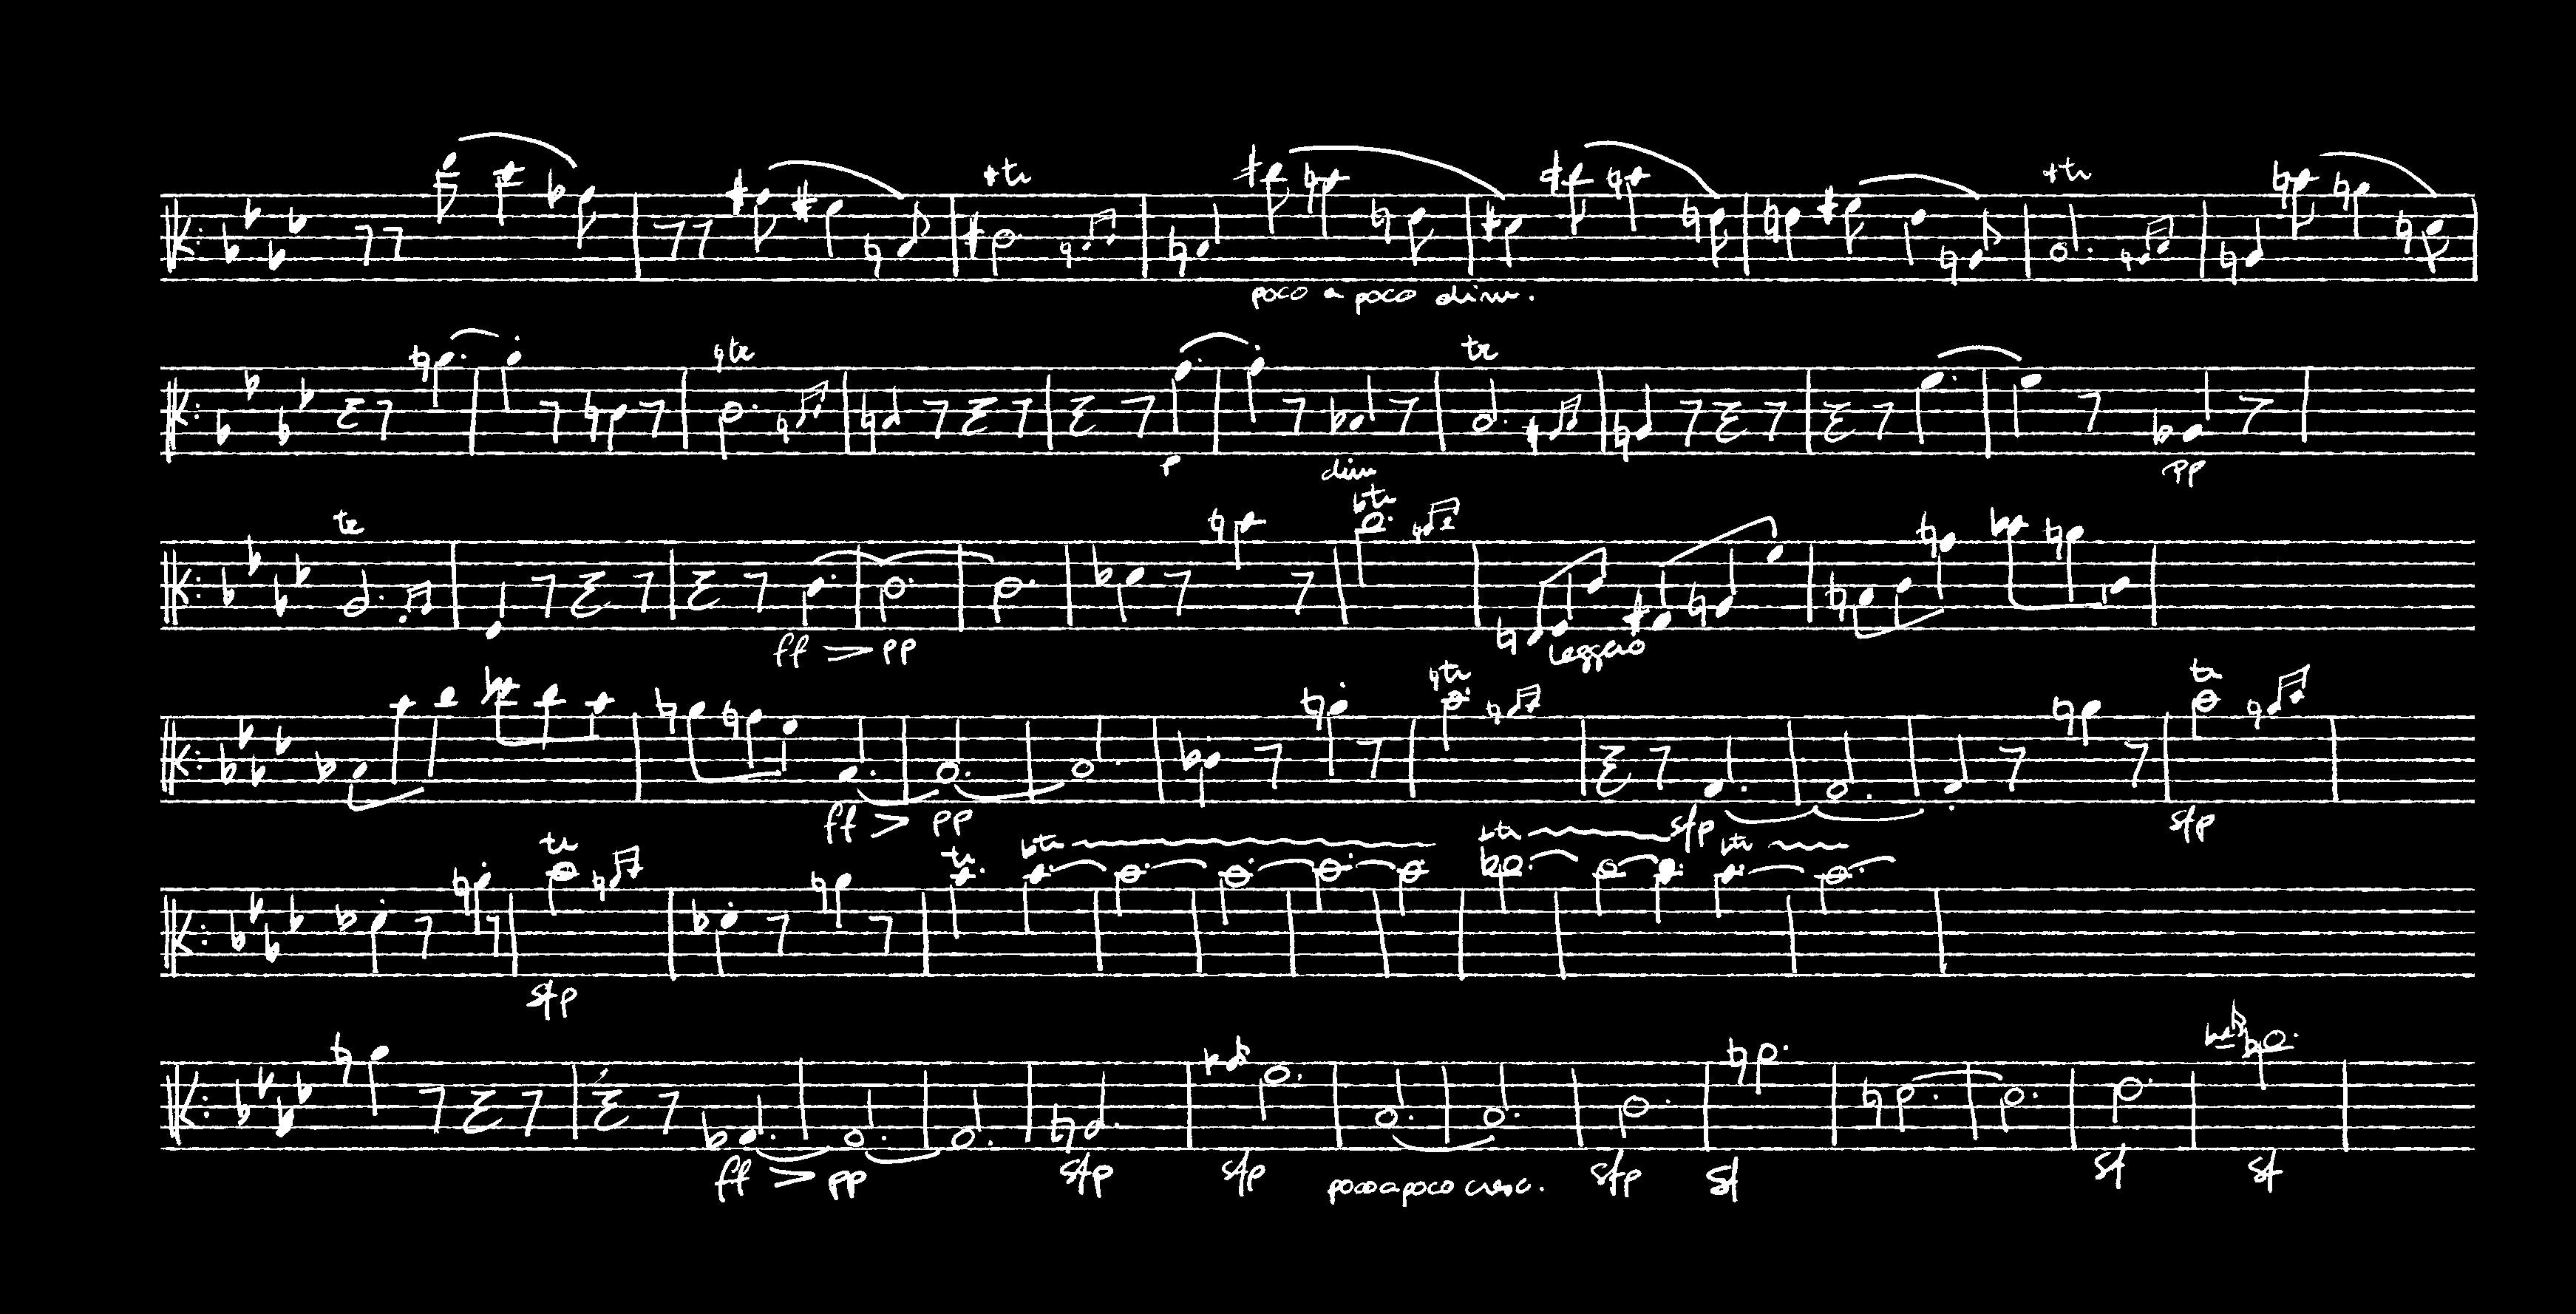 tr
poco a poco dim.
tr
tr
p
dim
pp
tr
tr
ff pp
leggero
tr
tr
ff pp
sfp
sfp
tr
tr
tr
tr
tr
sfp
ff pp
sfp
sfp
poco a poco cresc.
sfp
sf
sf
sf